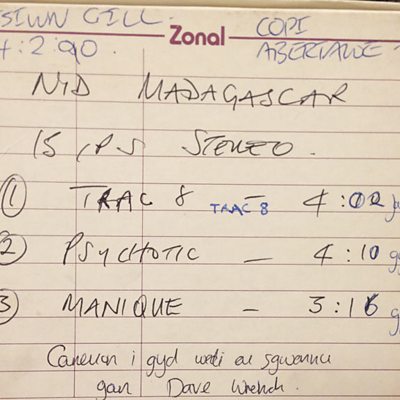 SIWN GILL.
4:2:90.
Zonal
COPI
ABERTAWE
NID MADAGASCAR
15 IPS STEREO.
① TRAC 8 TRAC 8 — 4:02
② PSYCHOTIC — 4:10
③ MANIQUE — 3:16
Caneuon i gyd wedi eu sgwennu
gan Dave Wrench.